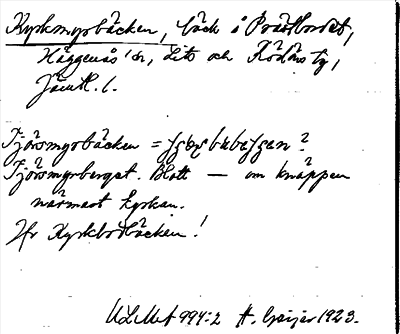 Kyrkmyrbäcken, bäck i Prästbordet,
Häggenås sn, Lits och Rödöns tg,
Jämtl. l.
Tjörsmyrbäcken =
Tjörsmyrberget. Blott — om knäppen
närmast kyrkan.
Jfr Kyrkbodbäcken!
ULMA 994:2 H. Geijer 1923.